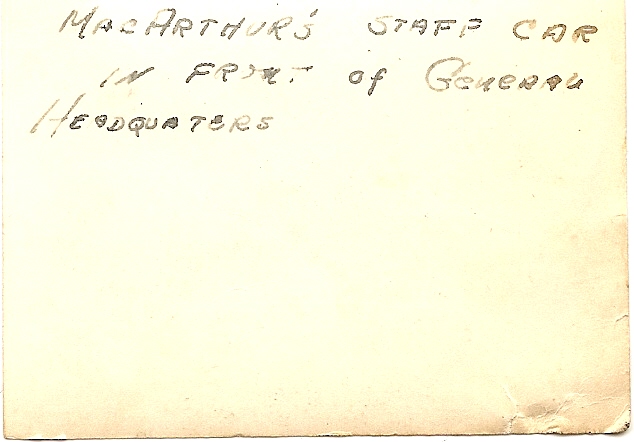 MacArthur's STAFF CAR
IN FRONT of General
HEADQUATERS